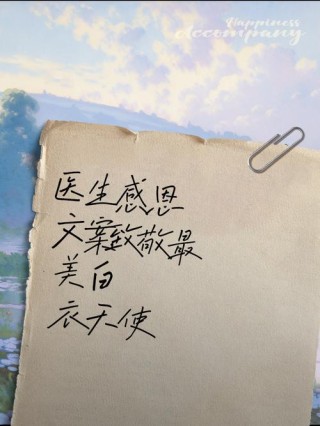 Happiness
Accompany
医生感恩
文案致敬最
美白
衣天使